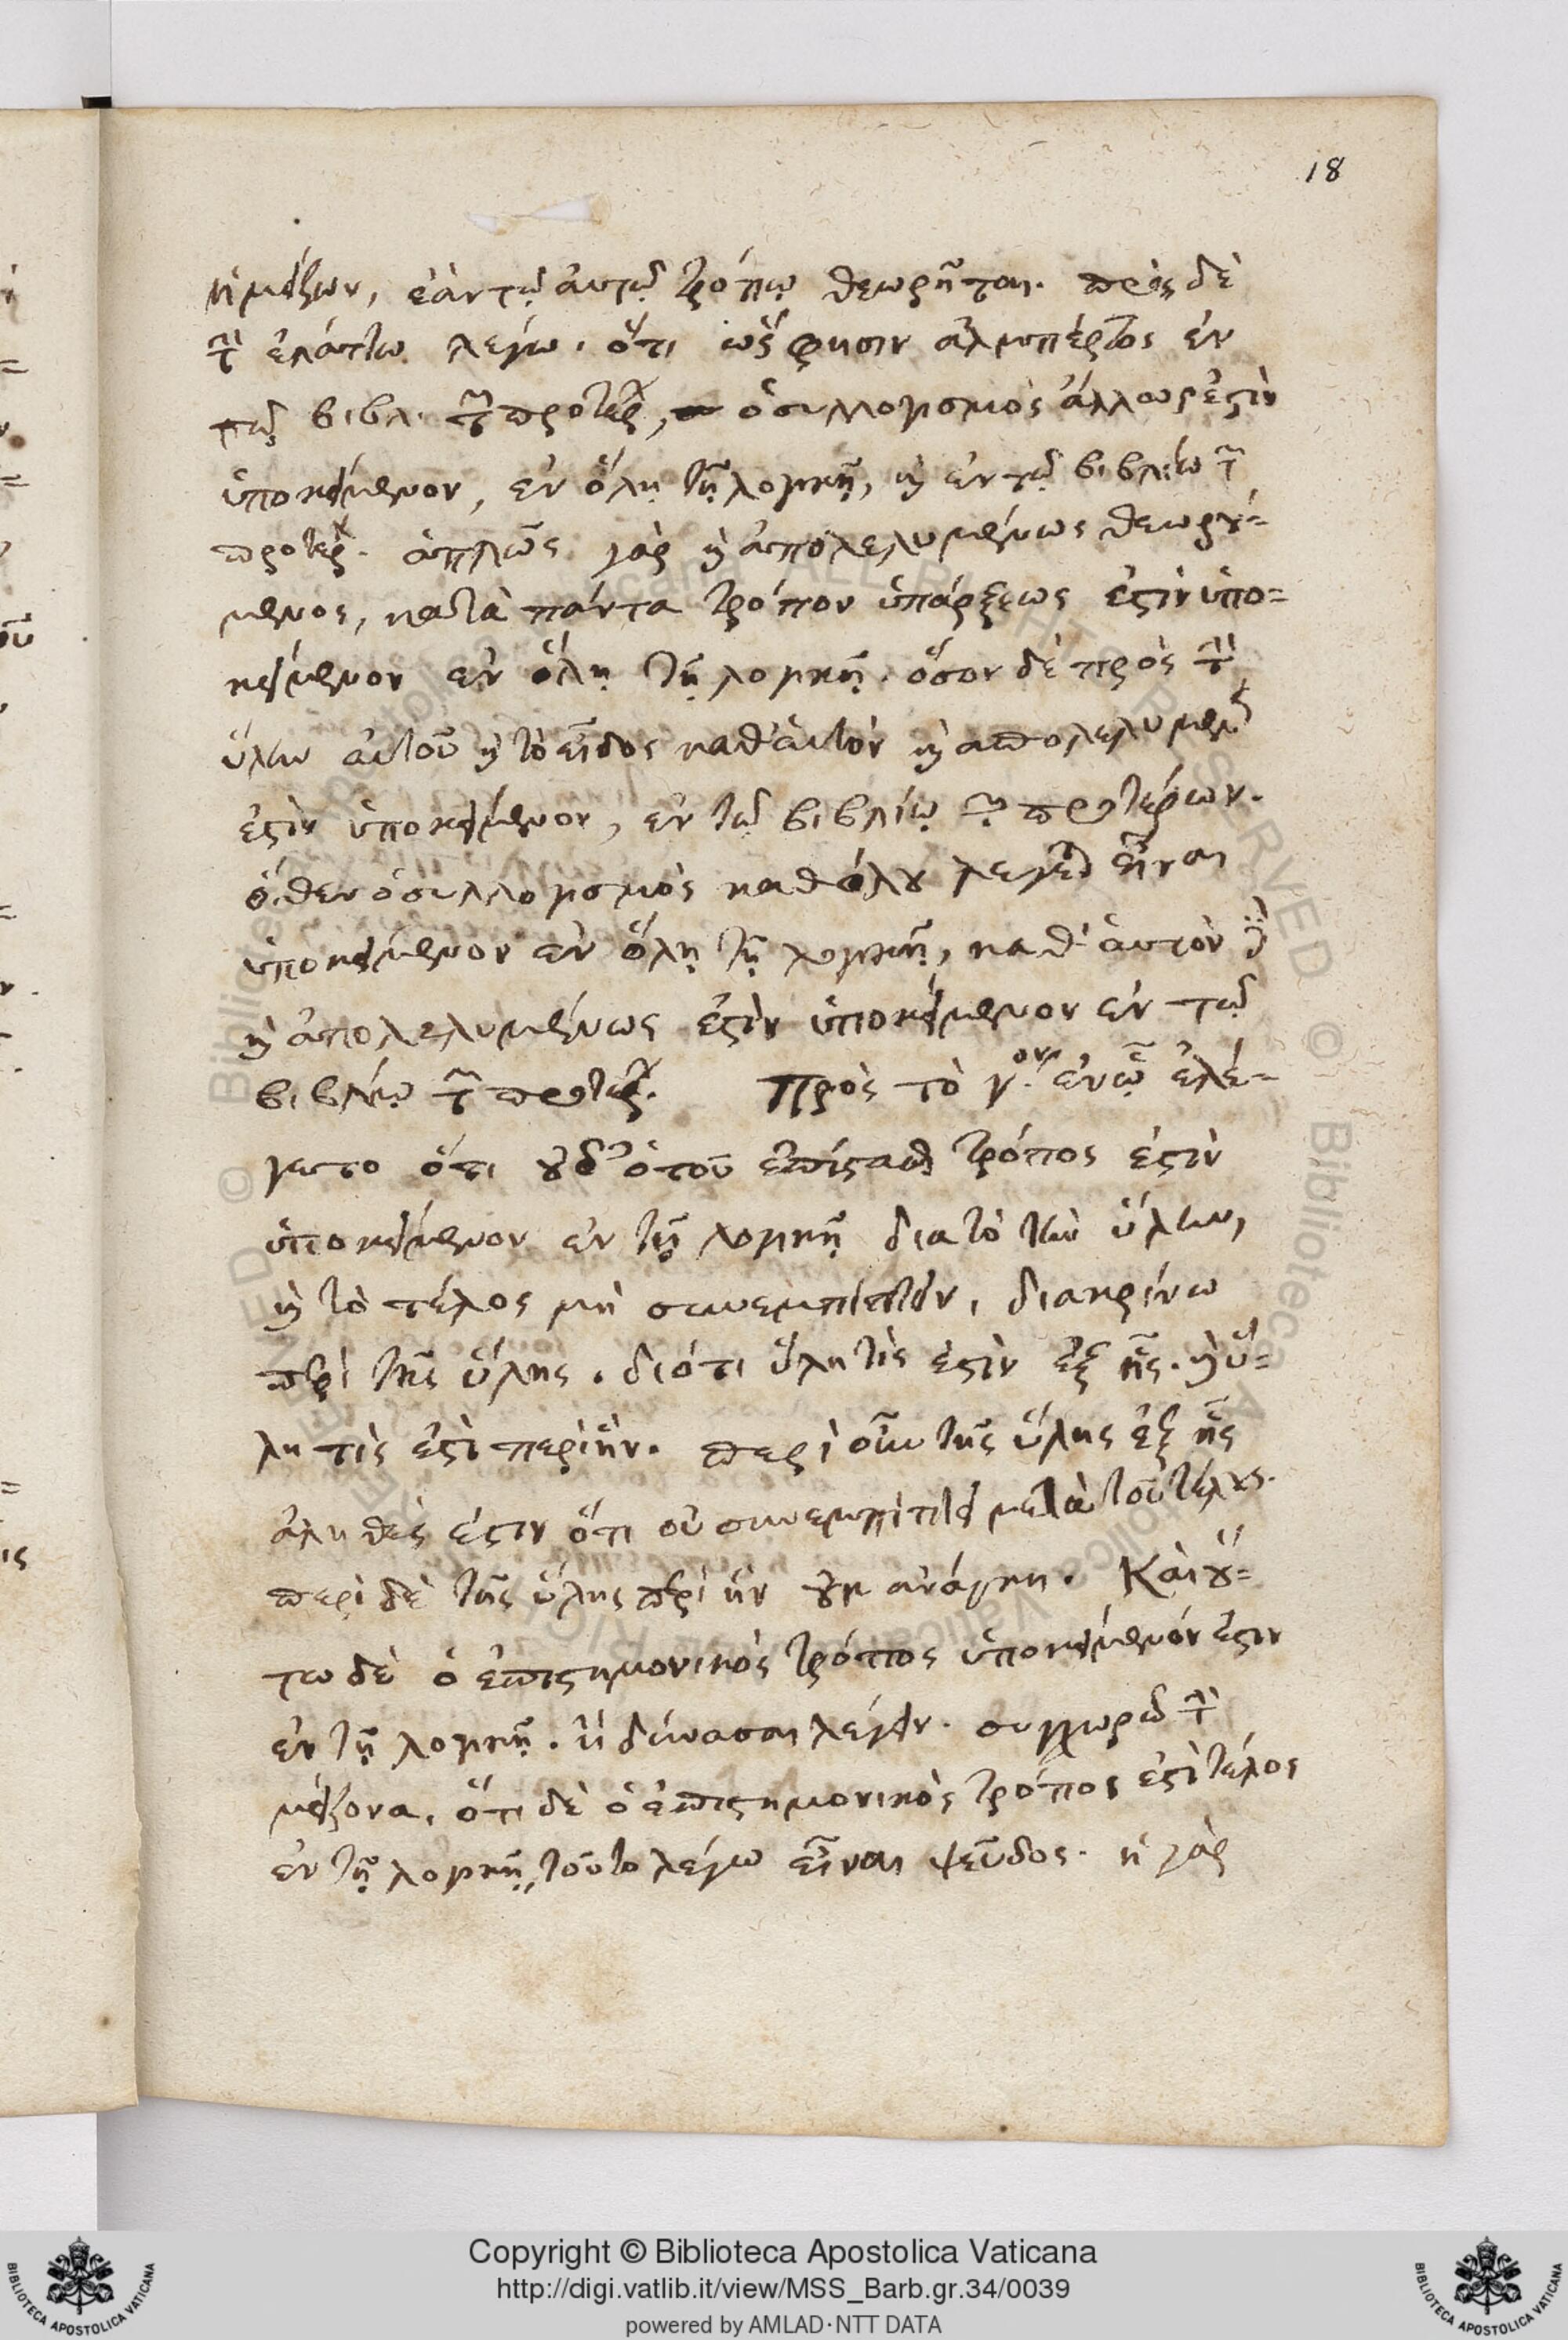 18
ἡ μείζων, ἐὰν τῷ αὐτῷ τρόπῳ θεωρῆται. πρὸς δὲ
τὴν ἐλάττω λέγω. ὅτι ὡς φησιν ἀλμπέρτος ἐν
τῷ βιβλ. τῶν προτέρ, ὁ συλλογισμὸς ἄλλως ἐστὶν
ὑποκείμενον, ἐν ὅλῃ τῇ λογικῇ, καὶ ἐν τῷ βιβλίω τῶν
προτέρ. ἁπλῶς γὰρ καὶ ἀπολελυμένως θεωρού=
μενος, κατὰ πάντα τρόπον ὑπάρξεως ἐστὶν ὑπο=
κείμενον ἐν ὅλῃ τῇ λογικῇ. ὅσον δὲ πρὸς τὴν
ὕλην αὐτοῦ καὶ τὸ εἶδος καθ' αὑτὸν καὶ ἀπολελυμέν
ἐστὶν ὑποκείμενον, ἐν τῷ βιβλίῳ τῶν προτέρων.
ὅθεν ὁ συλλογισμὸς καθόλου λέγεται εἶναι
ὑποκείμενον ἐν ὅλῃ τῇ λογικῇ, καθ' αὑτὸν δὲ
καὶ ἀπολελυμένως ἐστὶν ὑποκείμενον ἐν τῷ
βιβλίῳ τῶν προτέρ. Πρὸς τὸ γ.ον ἐν ᾧ ἐλέ=
γετο ὅτι οὐδ' ὁ τοῦ ἐπίστασθαι τρόπος ἐστὶν
ὑποκείμενον ἐν τῇ λογικῇ διὰ τὸ τὴν ὕλην,
καὶ τὸ τέλος μὴ συνεμπίπτειν, διακρίνω
περὶ τῆς ὕλης. διότι ὕλη τὶς ἐστὶν ἐξ ἧς. καὶ ὕ=
λη τὶς ἐστὶ περὶ ἣν. περὶ οὖν τῆς ὕλης ἐξ ἧς
ἀληθές ἐστιν ὅτι οὐ συνεμπίπτει μετὰ τοῦ τέλους.
περὶ δὲ τῆς ὕλης περὶ ἣν οὐκ ἀνάγκη. Καὶ οὕ=
τω δὲ ὁ ἐπιστημονικὸς τρόπος ὑποκείμενόν ἐστιν
ἐν τῇ λογικῇ. ἢ δύνασαι λέγειν. συγχωρῶ τὴν
μείζονα. ὅτι δὲ ὁ ἐπιστημονικὸς τρόπος ἐστὶ τέλος
ἐν τῇ λογικῇ, τοῦτο λέγω εἶναι ψεῦδος. ἡ γὰρ
Copyright © Biblioteca Apostolica Vaticana
http://digi.vatlib.it/view/MSS_Barb.gr.34/0039
powered by AMLAD·NTT DATA
BIBLIOTECA APOSTOLICA VATICANA
BIBLIOTECA APOSTOLICA VATICANA